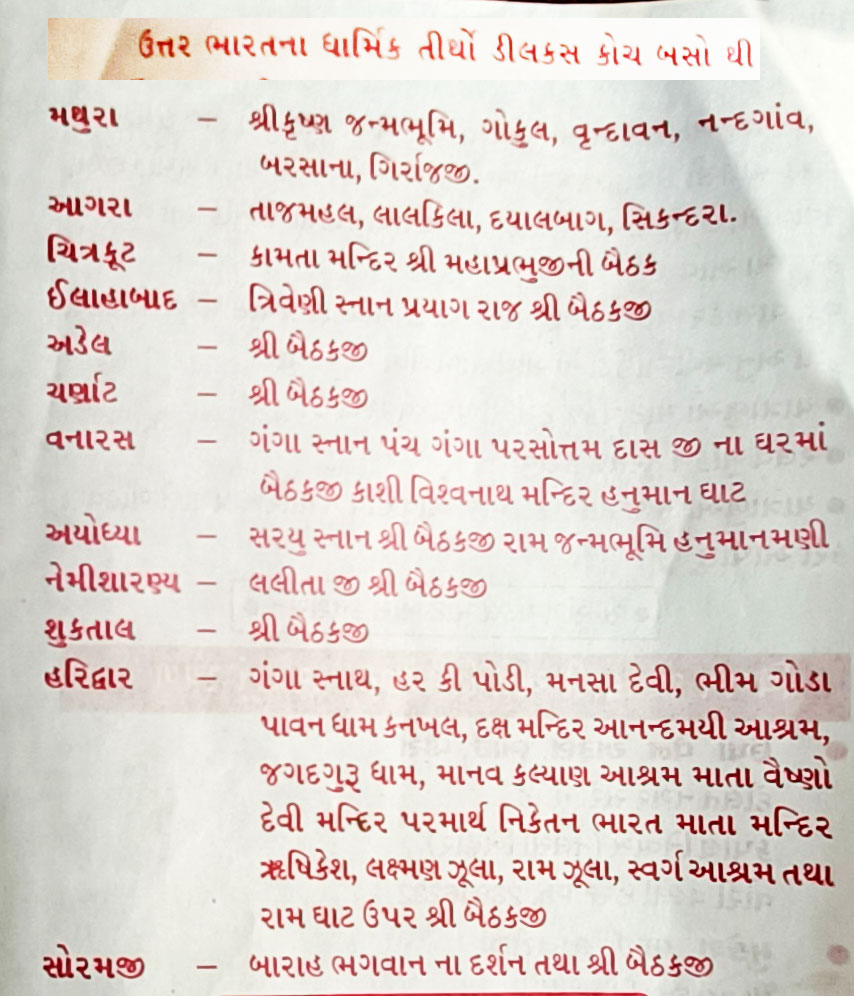 ઉત્તર ભારતના ધાર્મિક તીર્થો ડીલકસ કોચ બસો થી
મથુરા – શ્રીકૃષ્ણ જન્મભૂમિ, ગોકુલ, વૃન્દાવન, નન્દગાંવ,
બરસાના, ગિર્રાજજી.
આગરા – તાજમહલ, લાલકિલા, દયાલબાગ, સિકન્દરા.
ચિત્રકૂટ – કામતા મન્દિર શ્રી મહાપ્રભુજીની બૈઠક
ઈલાહાબાદ – ત્રિવેણી સ્નાન પ્રયાગ રાજ શ્રી બૈઠકજી
અડેલ – શ્રી બૈઠકજી
ચર્ણાટ – શ્રી બૈઠકજી
વનારસ – ગંગા સ્નાન પંચ ગંગા પરસોત્તમ દાસ જી ના ઘરમાં
બૈઠકજી કાશી વિશ્વનાથ મન્દિર હનુમાન ઘાટ
અયોધ્યા – સરયુ સ્નાન શ્રી બૈઠકજી રામ જન્મભૂમિ હનુમાનમણી
નેમીશારણ્ય – લલીતા જી શ્રી બૈઠકજી
શુકતાલ – શ્રી બૈઠકજી
હરિદ્વાર – ગંગા સ્નાથ, હર કી પોડી, મનસા દેવી, ભીમ ગોડા
પાવન ધામ કનખલ, દક્ષ મન્દિર આનન્દમયી આશ્રમ,
જગદગુરૂ ધામ, માનવ કલ્યાણ આશ્રમ માતા વૈષ્ણો
દેવી મન્દિર પરમાર્થ નિકેતન ભારત માતા મન્દિર
ઋષિકેશ, લક્ષ્મણ ઝૂલા, રામ ઝૂલા, સ્વર્ગ આશ્રમ તથા
રામ ઘાટ ઉપર શ્રી બૈઠકજી
સોરમજી – બારાહ ભગવાન ના દર્શન તથા શ્રી બૈઠકજી